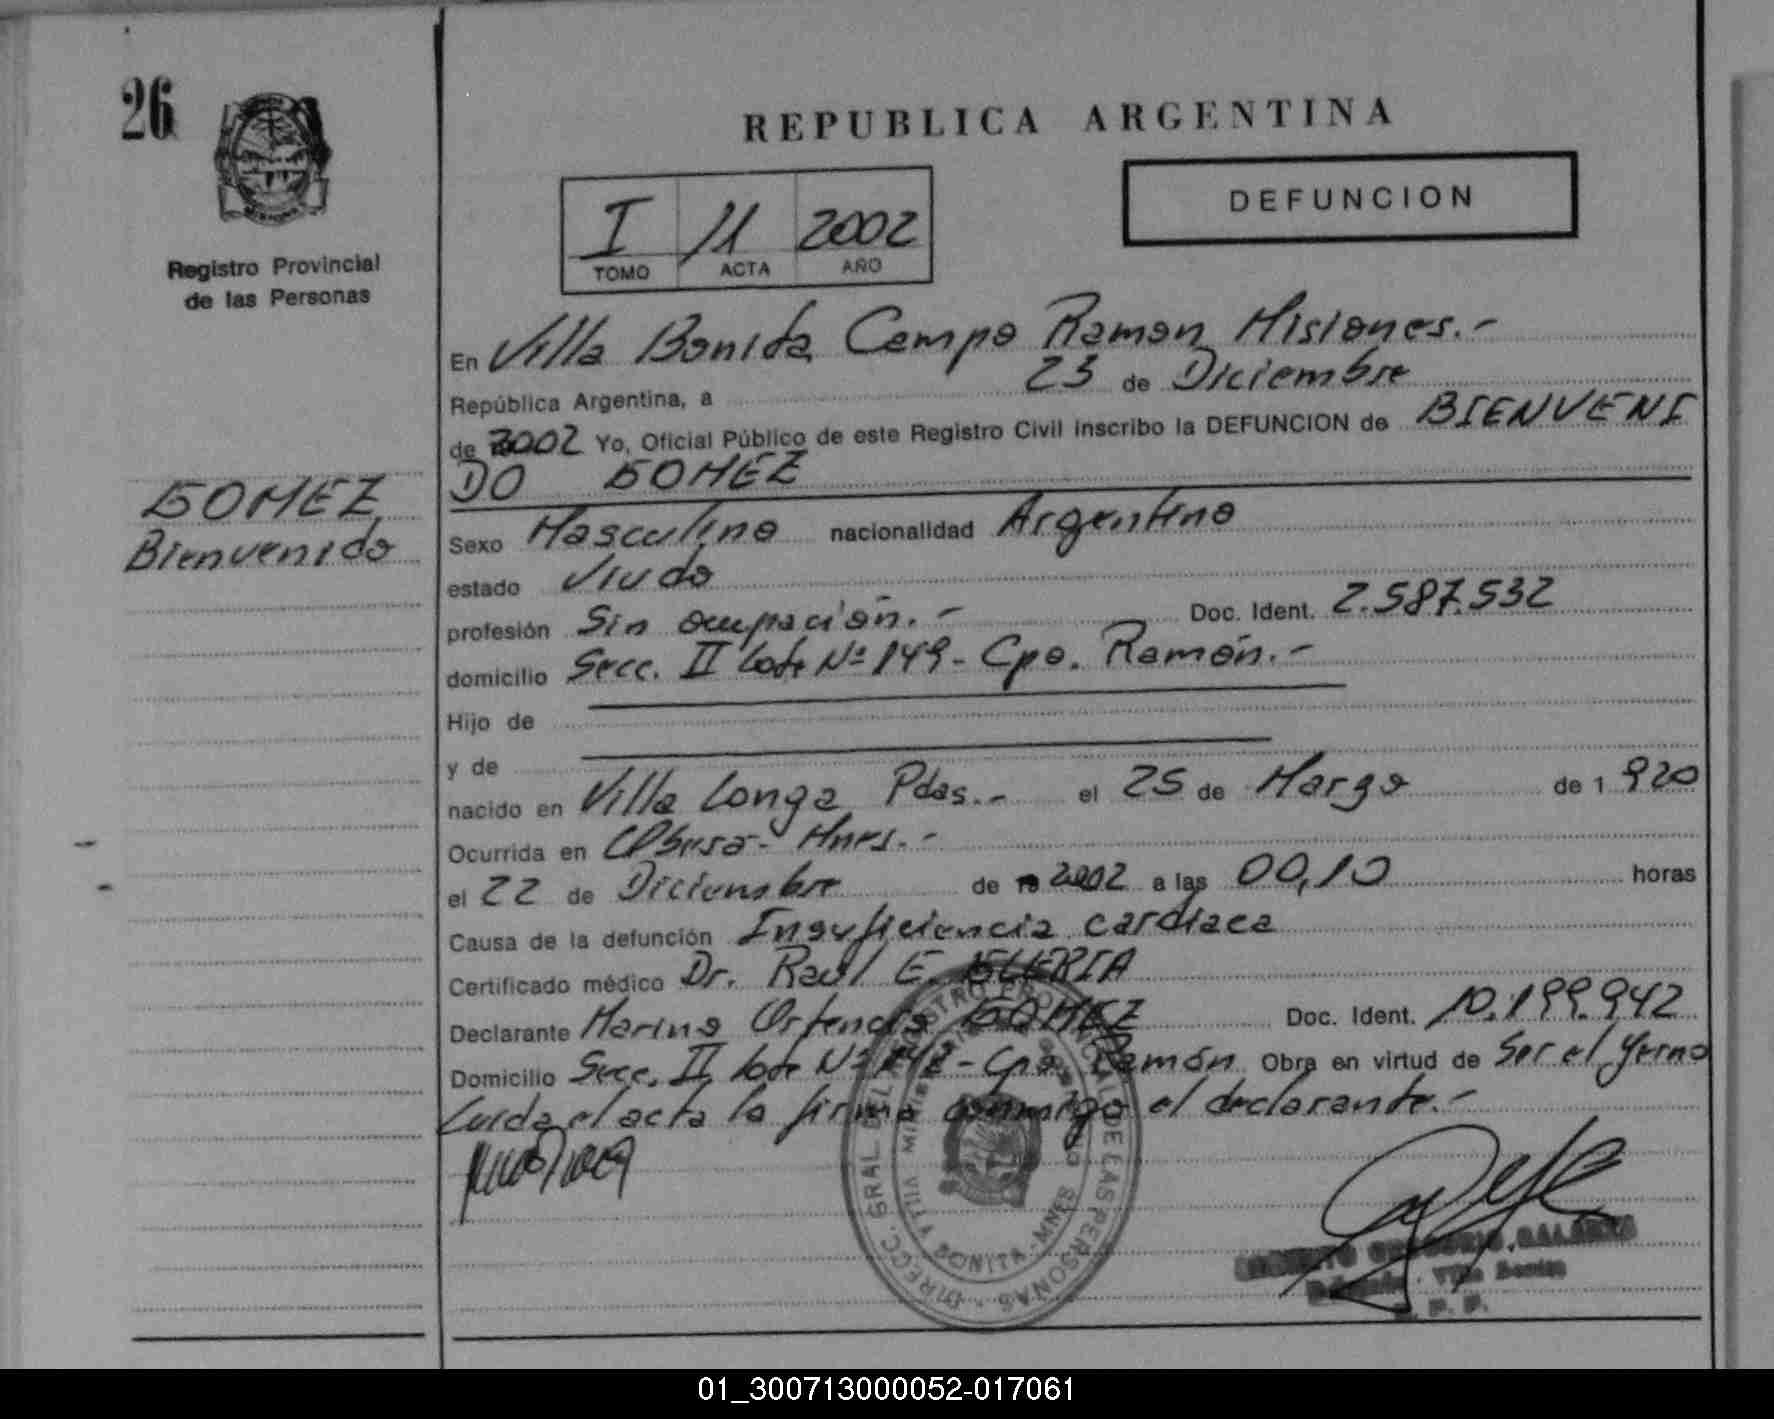 26
REPUBLICA ARGENTINA
DEFUNCION
I 11 2002
TOMO ACTA AÑO
Registro Provincial
de las Personas
GOMEZ,
Bienvenido
En Villa Bonita Campo Ramon Misiones.-
República Argentina, a 23 de Diciembre
de 2002 Yo, Oficial Público de este Registro Civil inscribo la DEFUNCION de BIENVENI
DO GOMEZ
Sexo Masculino nacionalidad Argentino
estado Viudo
profesión Sin ocupación.- Doc. Ident. 2.587.532
domicilio Secc. II Lote Nº 149 - Cpo. Ramón.-
Hijo de
y de
nacido en Villa Longa Pdas.- el 25 de Marzo de 1 920
Ocurrida en Obera- Mnes.-
el 22 de Diciembre de 2002 a las 00,10 horas
Causa de la defunción Insuficiencia cardiaca
Certificado médico Dr. Raul E.
Declarante Marino Ortencio GOMEZ Doc. Ident. 10.199.942
Domicilio Secc. II Lote Nº - Cpo. Ramón Obra en virtud de Ser el Yerno
Leida el acta la firma conmigo el declarante.-
DIRECC. GRAL. DEL REGISTRO PROVINCIAL DE LAS PERSONAS
VILLA BONITA - MNES
Villa Bonita
01_300713000052-017061